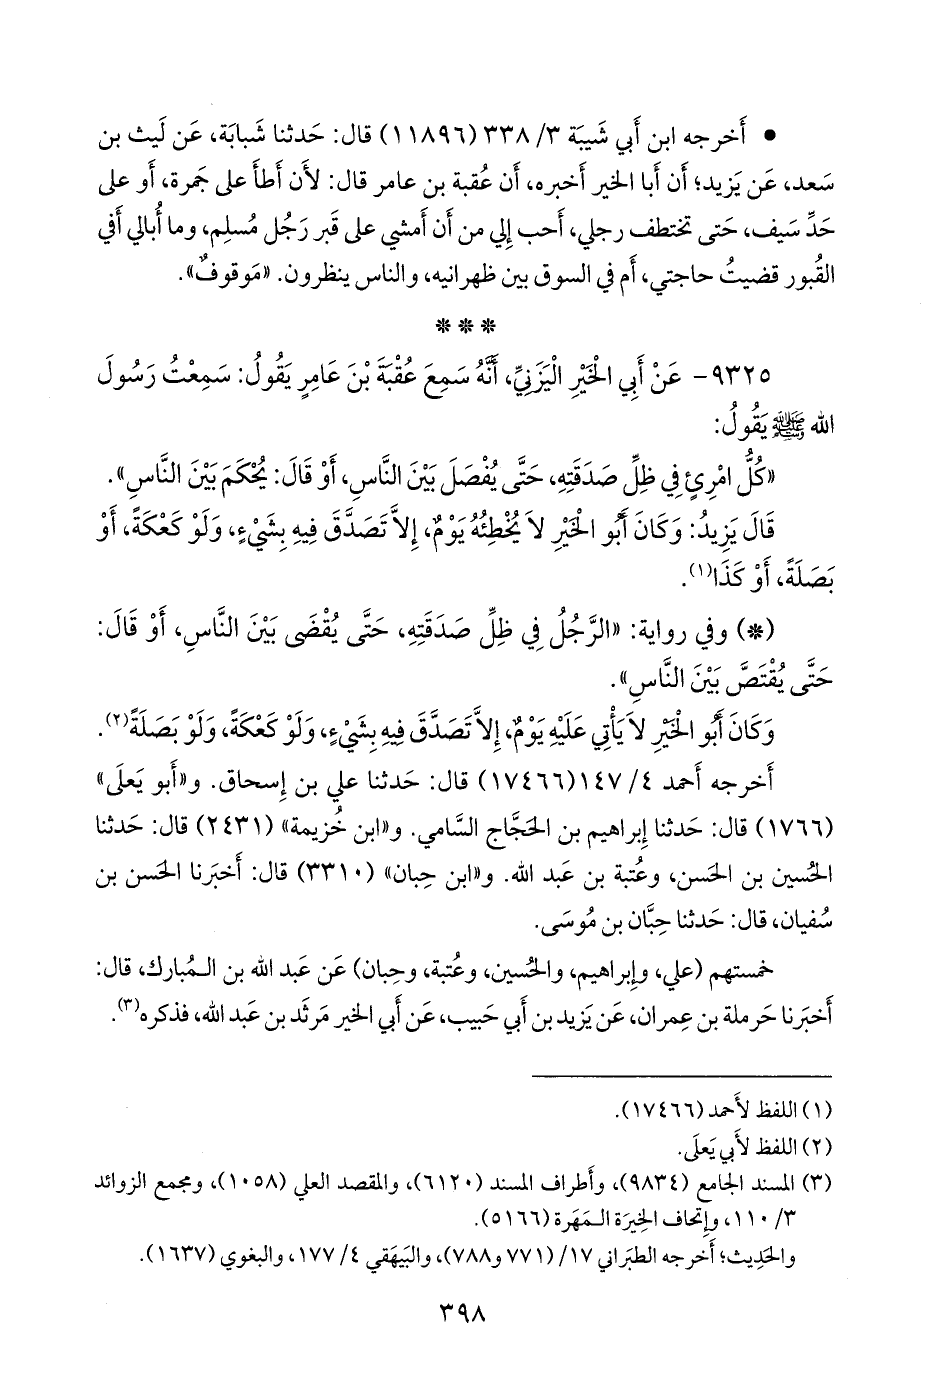 • أَخرجه ابن أَبي شَيبَة ٣/ ٣٣٨ (١١٨٩٦) قال: حَدثنا شَبابَة، عَن لَيث بن
سَعد، عَن يَزيد؛ أَن أَبا الخير أَخبره، أَن عُقبة بن عامر قال: لأَن أَطأَ على جَمرة، أَو على
حَدِّ سَيف، حَتى تختطف رجلي، أَحب إِلي من أَن أَمشي على قبر رَجُل مُسلِم، وما أُبالي أَفي
القُبور قضيتُ حاجتي، أَم في السوق بين ظهرانيه، والناس ينظرون. «مَوقوفٌ».
* * *
٩٣٢٥- عَنْ أَبِي الْخَيْرِ الْيَزَنِيِّ، أَنَّهُ سَمِعَ عُقْبَةَ بْنَ عَامِرٍ يَقُولُ: سَمِعْتُ رَسُولَ
الله ﷺ يَقُولُ:
«كُلُّ امْرِئٍ فِي ظِلِّ صَدَقَتِهِ، حَتَّى يُفْصَلَ بَيْنَ النَّاسِ، أَوْ قَالَ: يُحْكَمَ بَيْنَ النَّاسِ».
قَالَ يَزِيدُ: وَكَانَ أَبُو الْخَيْرِ لاَ يُخْطِئُهُ يَوْمٌ، إِلاَّ تَصَدَّقَ فِيهِ بِشَيْءٍ، وَلَوْ كَعْكَةً، أَوْ
بَصَلَةً، أَوْ كَذَا(١).
(*) وفي رواية: «الرَّجُلُ فِي ظِلِّ صَدَقَتِهِ، حَتَّى يُقْضَى بَيْنَ النَّاسِ، أَوْ قَالَ:
حَتَّى يُقْتَصَّ بَيْنَ النَّاسِ».
وَكَانَ أَبُو الْخَيْرِ لاَ يَأْتِي عَلَيْهِ يَوْمٌ، إِلاَّ تَصَدَّقَ فِيهِ بِشَيْءٍ، وَلَوْ كَعْكَةً، وَلَوْ بَصَلَةً(٢).
أَخرجه أَحمد ٤/ ١٤٧ (١٧٤٦٦) قال: حَدثنا علي بن إِسحاق. و«أَبو يَعلَى»
(١٧٦٦) قال: حَدثنا إِبراهيم بن الحَجَّاج السَّامي. و«ابن خُزيمة» (٢٤٣١) قال: حَدثنا
الحُسين بن الحَسن، وعُتبة بن عَبد الله. و«ابن حِبان» (٣٣١٠) قال: أَخبَرنا الحَسن بن
سُفيان، قال: حَدثنا حِبَّان بن مُوسَى.
خمستهم (علي، وإِبراهيم، والحُسين، وعُتبة، وحِبان) عَن عَبد الله بن الـمُبارك، قال:
أَخبَرنا حَرملة بن عِمران، عَن يَزيد بن أَبي حَبيب، عَن أَبي الخير مَرثَد بن عَبد الله، فذكره(٣).
(١) اللفظ لأَحمد (١٧٤٦٦).
(٢) اللفظ لأَبي يَعلَى.
(٣) المسند الجامع (٩٨٣٤)، وأَطراف المسند (٦١٢٠)، والمقصد العلي (١٠٥٨)، ومجمع الزوائد
٣/ ١١٠، وإِتحاف الخِيرَة الـمَهَرة (٥١٦٦).
والحَدِيث؛ أَخرجه الطبَراني ١٧/ (٧٧١ و٧٨٨)، والبَيهَقي ٤/ ١٧٧، والبغوي (١٦٣٧).
٣٩٨